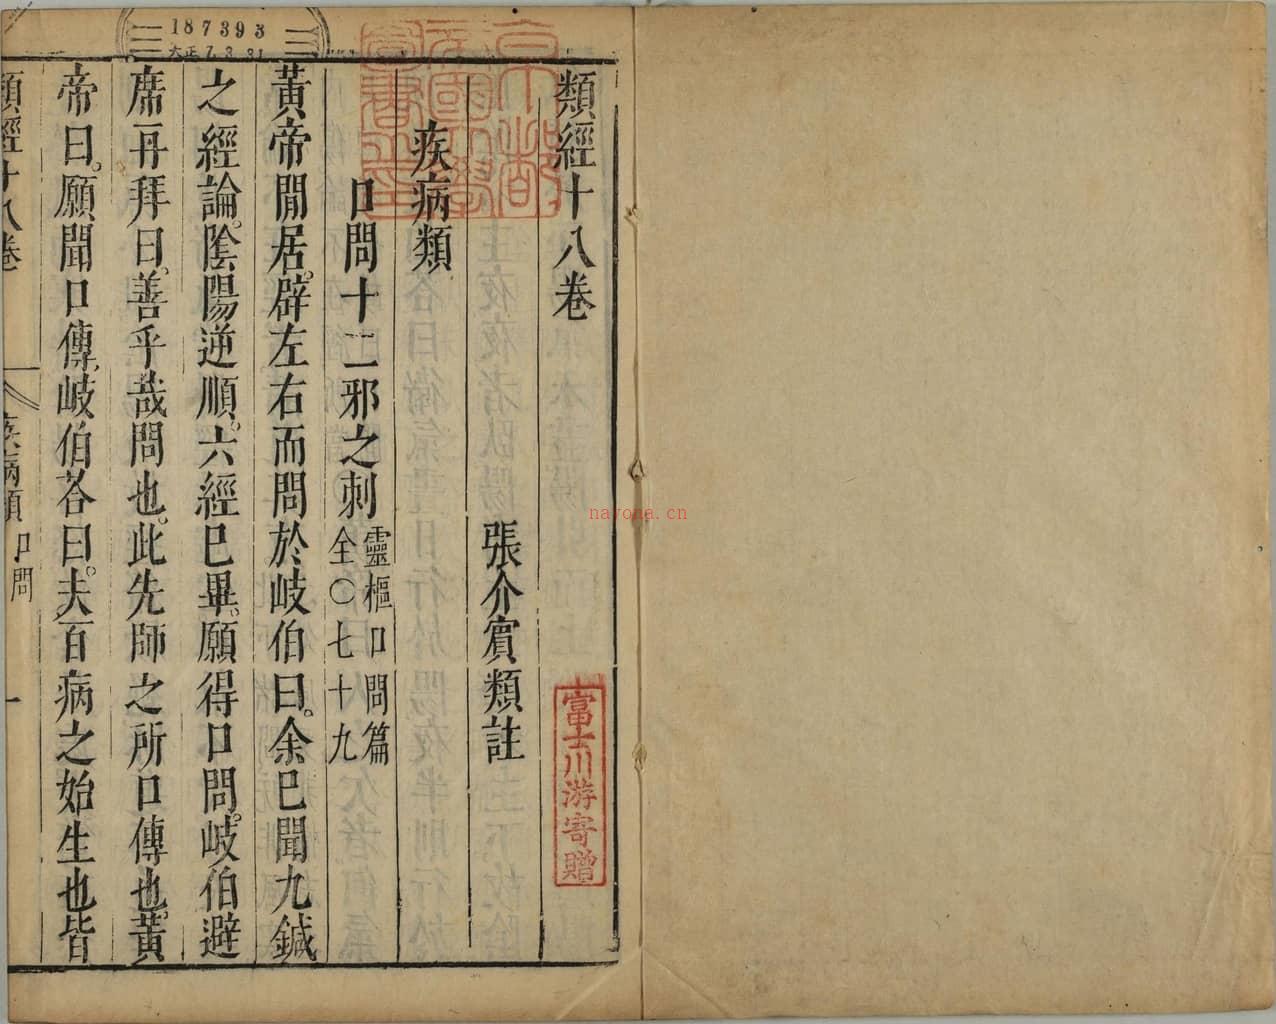 187393
大正7.3.31
類經十八卷
張介賓類註
疾病類
口問十二邪之刺
靈樞口問篇
全〇七十九
黃帝閒居。辟左右而問於岐伯曰。余巳聞九鍼
之經論。陰陽逆順。六經巳畢。願得口問。岐伯避
席再拜曰。善乎哉問也。此先師之所口傳也。黃
帝曰。願聞口傳。岐伯荅曰。夫百病之始生也皆
類經十八卷
疾病類 口問
一
京都
帝國大學
圖書之印
富士川游寄贈
nayona.cn